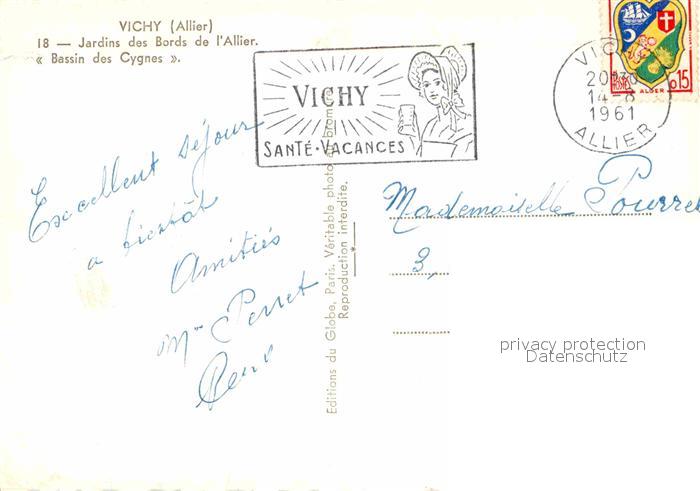 VICHY (Allier)
18 — Jardins des Bords de l'Allier.
« Bassin des Cygnes ».
VICHY
SANTÉ·VACANCES
VICHY
20H30
14-8
1961
ALLIER
POSTES
ALGER
0,15
Excellent séjour
a bientôt
Amitiés
Mme Perret
René
Editions du Globe, Paris. Véritable photo au bromure
Reproduction interdite.
Mademoiselle Pourret
3,
privacy protection
Datenschutz